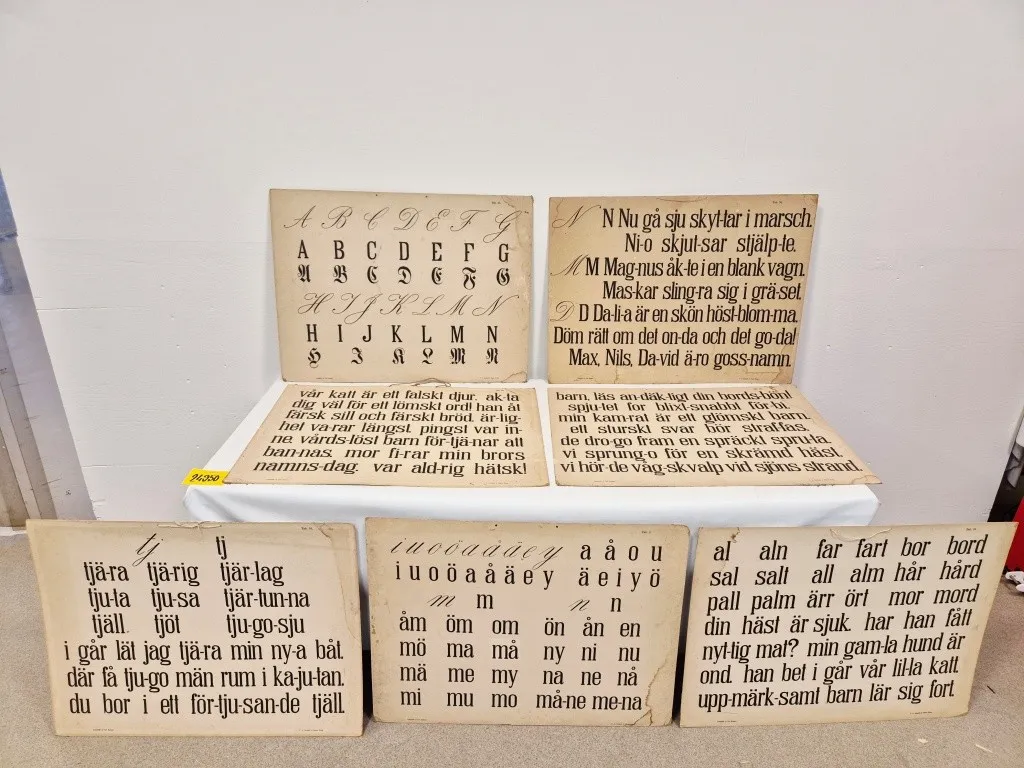 A B C D E F G
A B C D E F G
A B C D E F G
H I J K L M N
H I J K L M N
H I K L M N
N N Nu gå sju skyt-tar i marsch.
Ni-o skjut-sar stjälp-te.
M M Mag-nus åk-te i en blank vagn.
Mas-kar sling-ra sig i grä-set.
D D Da-li-a är en skön höst-blom-ma.
Döm rätt om det on-da och det go-da!
Max, Nils, Da-vid ä-ro goss-namn.
vår katt är ett falskt djur. ak-ta
dig väl för ett lömskt ord! han åt
färsk sill och färskt bröd. är-lig-
het va-rar längst. pingst var in-
ne. vårds-löst barn för-tjä-nar att
ban-nas. mor fi-rar min brors
namns-dag. var ald-rig hätsk!
barn, läs an-däk-tigt din bords-bön!
spju-tet for blixt-snabbt för-bi.
min kam-rat är ett glömskt barn.
ett sturskt svar bör straf-fas.
de dro-go fram en spräckt spru-ta.
vi sprung-o för en skrämd häst.
vi hör-de våg-skvalp vid sjöns strand.
24250
tj tj
tjä-ra tjä-rig tjär-lag
tju-ta tju-sa tjär-tun-na
tjäll tjöt tju-go-sju
i går lät jag tjä-ra min ny-a båt.
där få tju-go män rum i ka-ju-tan.
du bor i ett för-tju-san-de tjäll.
i u o ö a å ä e y a å o u
i u o ö a å ä e y ä e i y ö
m m n n
åm öm om ön ån en
mö ma må ny ni nu
mä me my na ne nå
mi mu mo må-ne me-na
al aln far fart bor bord
sal salt all alm hår hård
pall palm ärr ört mor mord
din häst är sjuk. har han fått
nyt-tig mat? min gam-la hund är
ond. han bet i går vår lil-la katt.
upp-märk-samt barn lär sig fort.